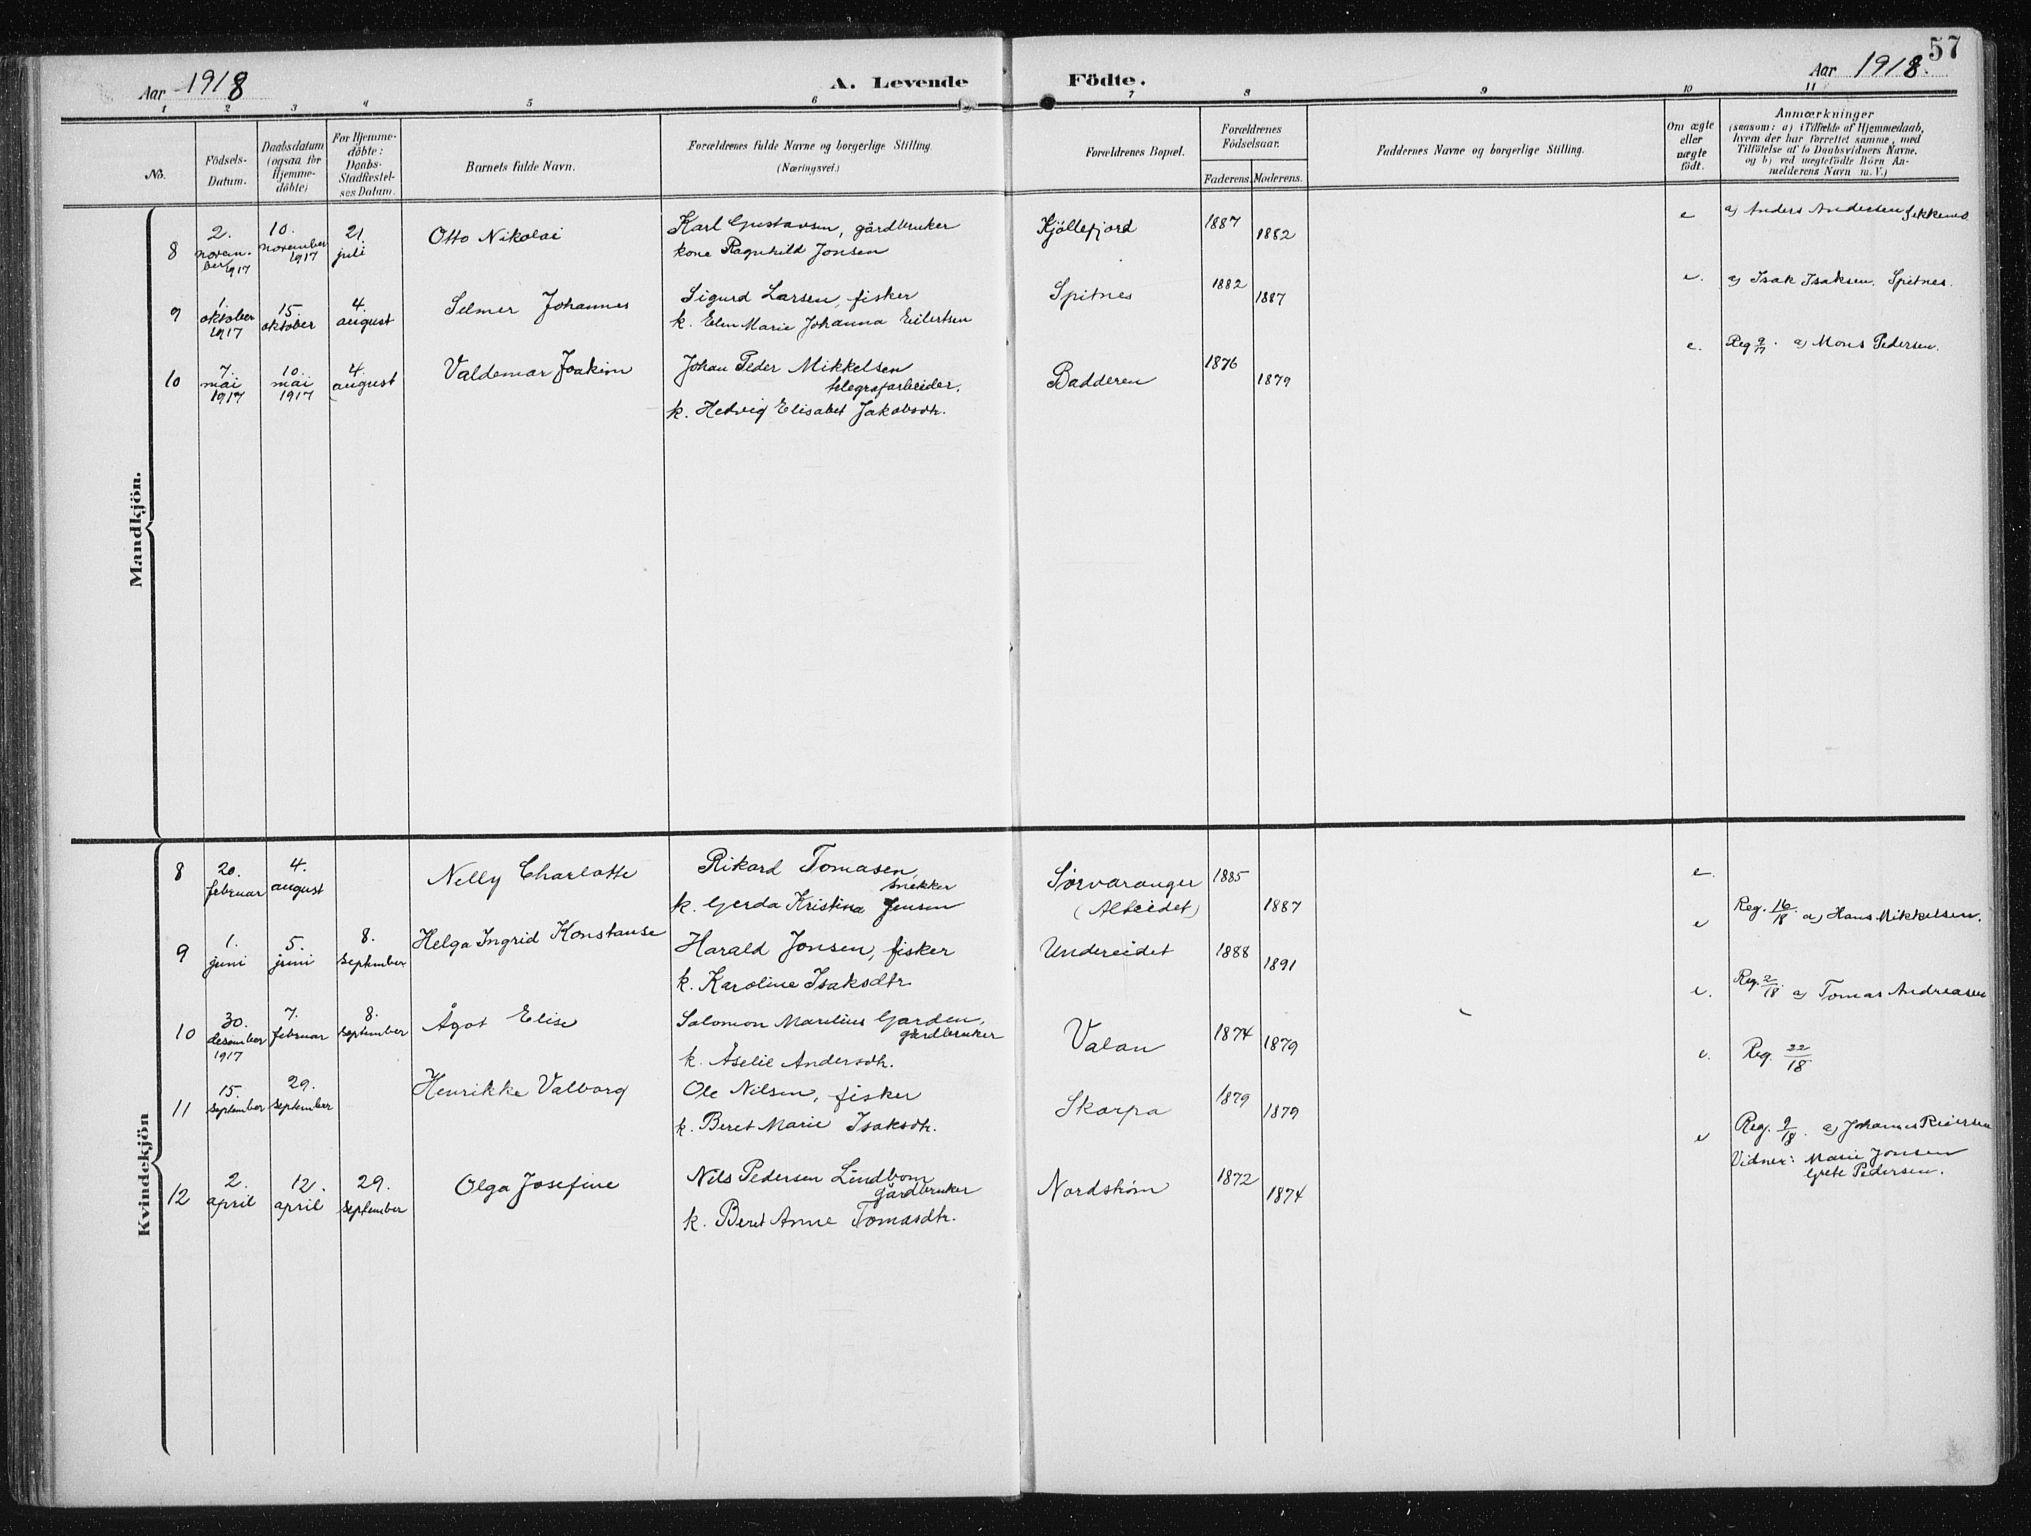 57
Aar 1918
A. Levende Födte.
Aar 1918.
1 2 3 4 5 6 7 8 9 10 11
No.
Födsels-
Datum.
Daabsdatum
(ogsaa for
Hjemme-
döbte)
For Hjemme-
döbte:
Daabs-
Stadfæstel-
ses Datum.
Barnets fulde Navn.
Forældrenes fulde Navne og borgerlige Stilling.
(Næringsvei.)
Forældrenes Bopæl.
Forældrenes
Födselsaar.
Faderens. Moderens.
Faddernes Navne og borgerlige Stilling.
Om ægte
eller
uægte
födt.
Anmærkninger
(saasom: a) i Tilfælde af Hjemmedaab,
hvem der har forrettet samme, med
Tilföielse af to Daabsvidners Navne,
og b) ved uægtefödte Börn An-
melderens Navn m. V.)
Mandkjön.
8
2.
novem-
ber 1917
10.
november
1917
21.
juli
Otto Nikolai
Karl Gustavsen, gårdbruker
kone Ragnhild Jonsen
Kjöllefjord
1887
1882
e
a) Anders Andersen
9
1.
oktober
1917
15.
oktober
4.
august
Selmer Johannes
Sigurd Larsen, fisker
k. Elen Marie Johanna Eilertsen
Spitnes
1882
1887
e.
a) Isak Isaksen, Spitnes.
10
7.
mai
1917
10.
mai
1917
4.
august
Valdemar Joakim
Johan Peder Mikkelsen
telegrafarbeider.
k. Hedvig Elisabet Jakobsdtr.
Badderen
1876
1879
e.
Reg 9/17. a) Mons Pedersen.
Kvindekjön
8
20.
februar
4.
august
Nelly Charlotte
Rikard Tomasen,
snekker
k. Gerda Kristina Jensen
Sørvaranger
(Alteidet)
1885
1887
e.
9
1.
juni
5.
juni
8.
september
Helga Ingrid Konstanse
Harald Jonsen, fisker
k. Karoline Isaksdtr
Undereidet
1888
1891
e
Reg. 16/18 a) Hans Mikkelsen.
10
30.
desember
1917
7.
februar
8.
september
Ågot Elise
Salomon Marelius Garden,
gårdbruker
k. Åselie Andersdtr.
Valan
1874
1879
e.
Reg. 2/18. a) Tomas Andreasen
11
15.
september
29.
september
Henrikke Valborg
Ole Nilsen, fisker
k. Beret Marie Isaksdtr.
Skorpa
1879
1879
e.
Reg. 22/18
12
2.
april
12.
april
29.
september
Olga Josefine
Nils Pedersen Lindbom
gårdbruker
k. Beret Anne Tomasdtr.
Nordstrøm
1872
1874
e
Reg. 9/18. a) Johannes Reiersen
Vidner: Marie Jonsen
Grete Pedersen.